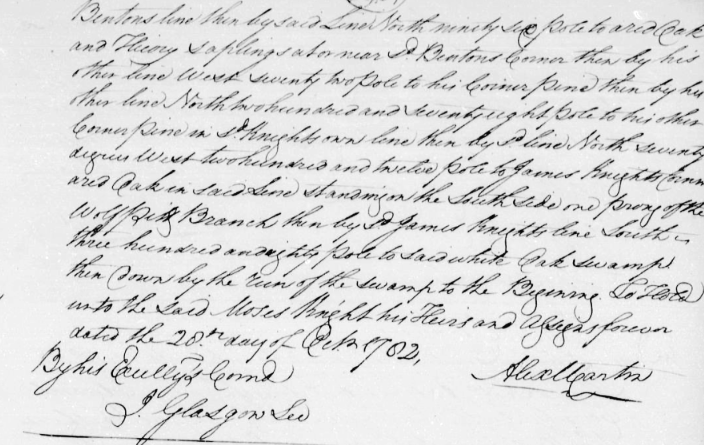 Bentons line then by said Line North ninety six pole to a red Oak
and Hicory saplings a bov near Sd. Bentons Corner then by his
other line West seventy two pole to his Corner pine then by his
other line North two hundred and seventy eight pole to his other
Corner pine in Sd. Knights own line then by Sd. line North seventy
degrees West two hundred and twelve pole to James Knights Corner
a red Oak in said Line standing on the South side one prong of the
Wolf Pitt Branch then by Sd. James Knights line South
three hundred and eighty pole to said white Oak swamp
then down by the run of the swamp to the Begining To Hold
unto the said Moses Knight his Heirs and Assigns forever
dated the 28th day of Octr. 1782,
By his Excellys Comd Alex Martin
J. Glasgow Sec